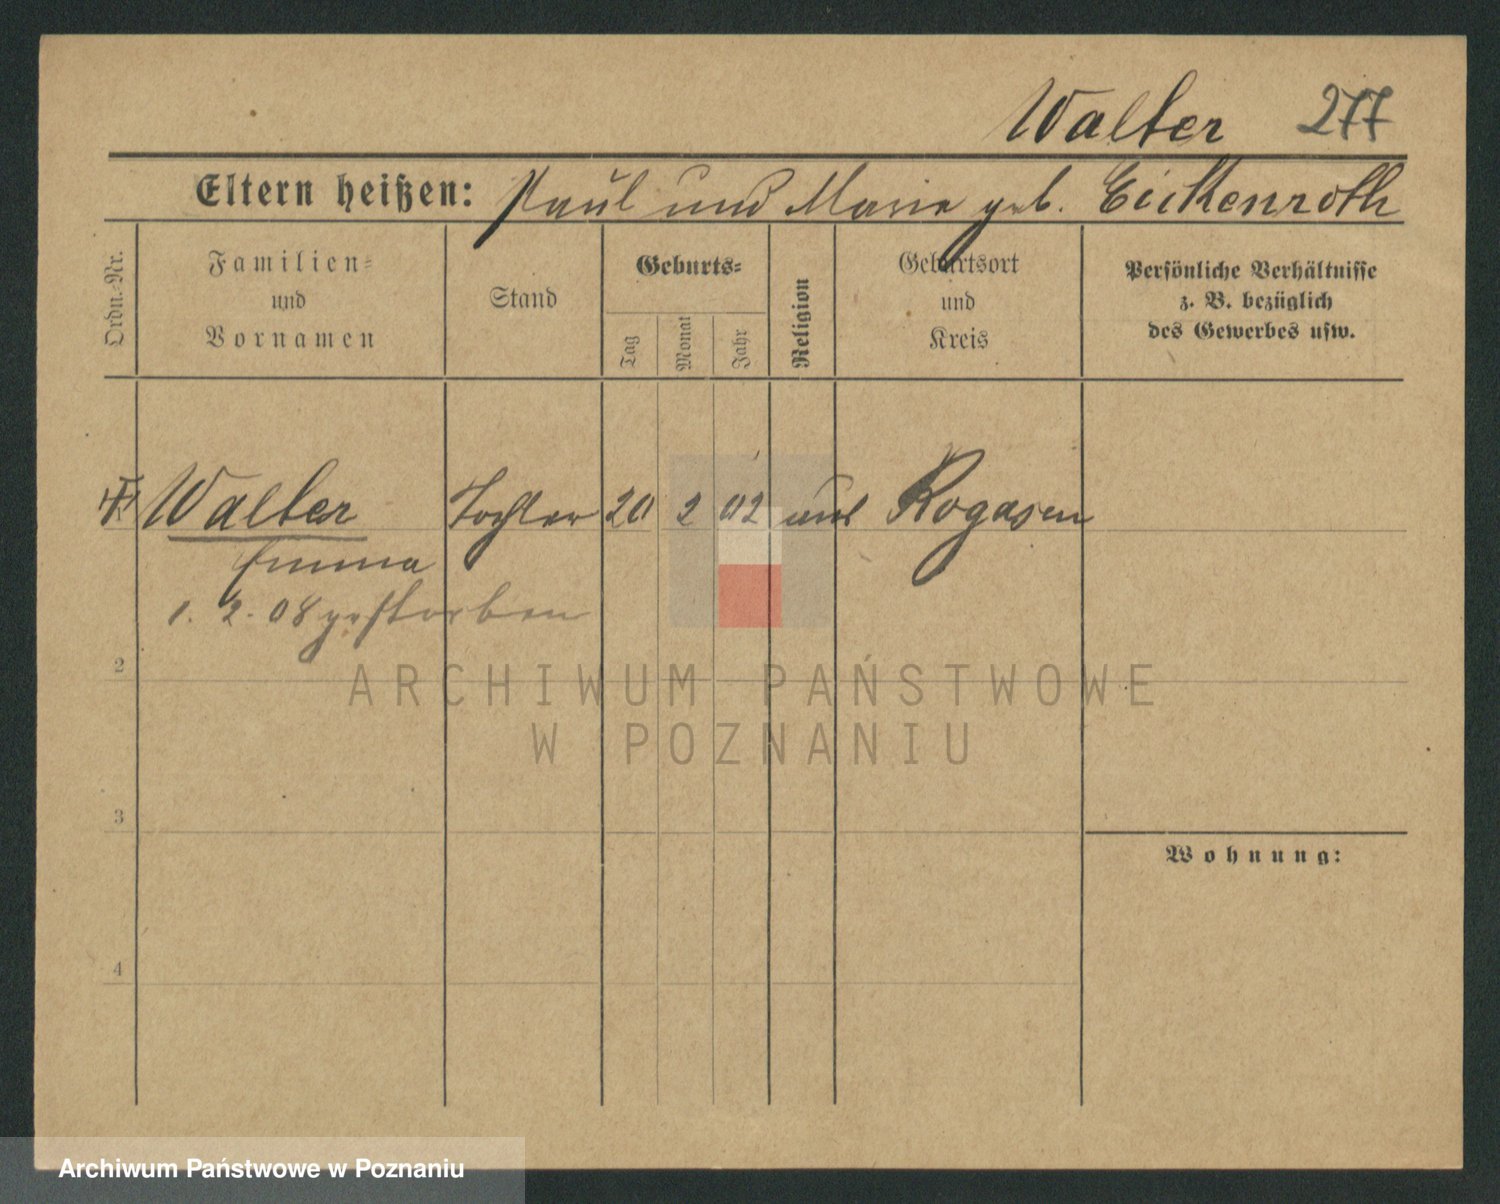 Walter 277
Eltern heißen: Paul und Marie geb. Eickenroth
Ordn.-Nr.
Familien-
und
Vornamen
Stand
Geburts-
Tag
Monat
Jahr
Religion
Geburtsort
und
Kreis
Persönliche Verhältnisse
z. B. bezüglich
des Gewerbes usw.
Walter Tochter 20 2 02 Rogasen
Emma
1. 2. 08 gestorben
2
3
4
Wohnung:
ARCHIWUM PAŃSTWOWE
W POZNANIU
Archiwum Państwowe w Poznaniu